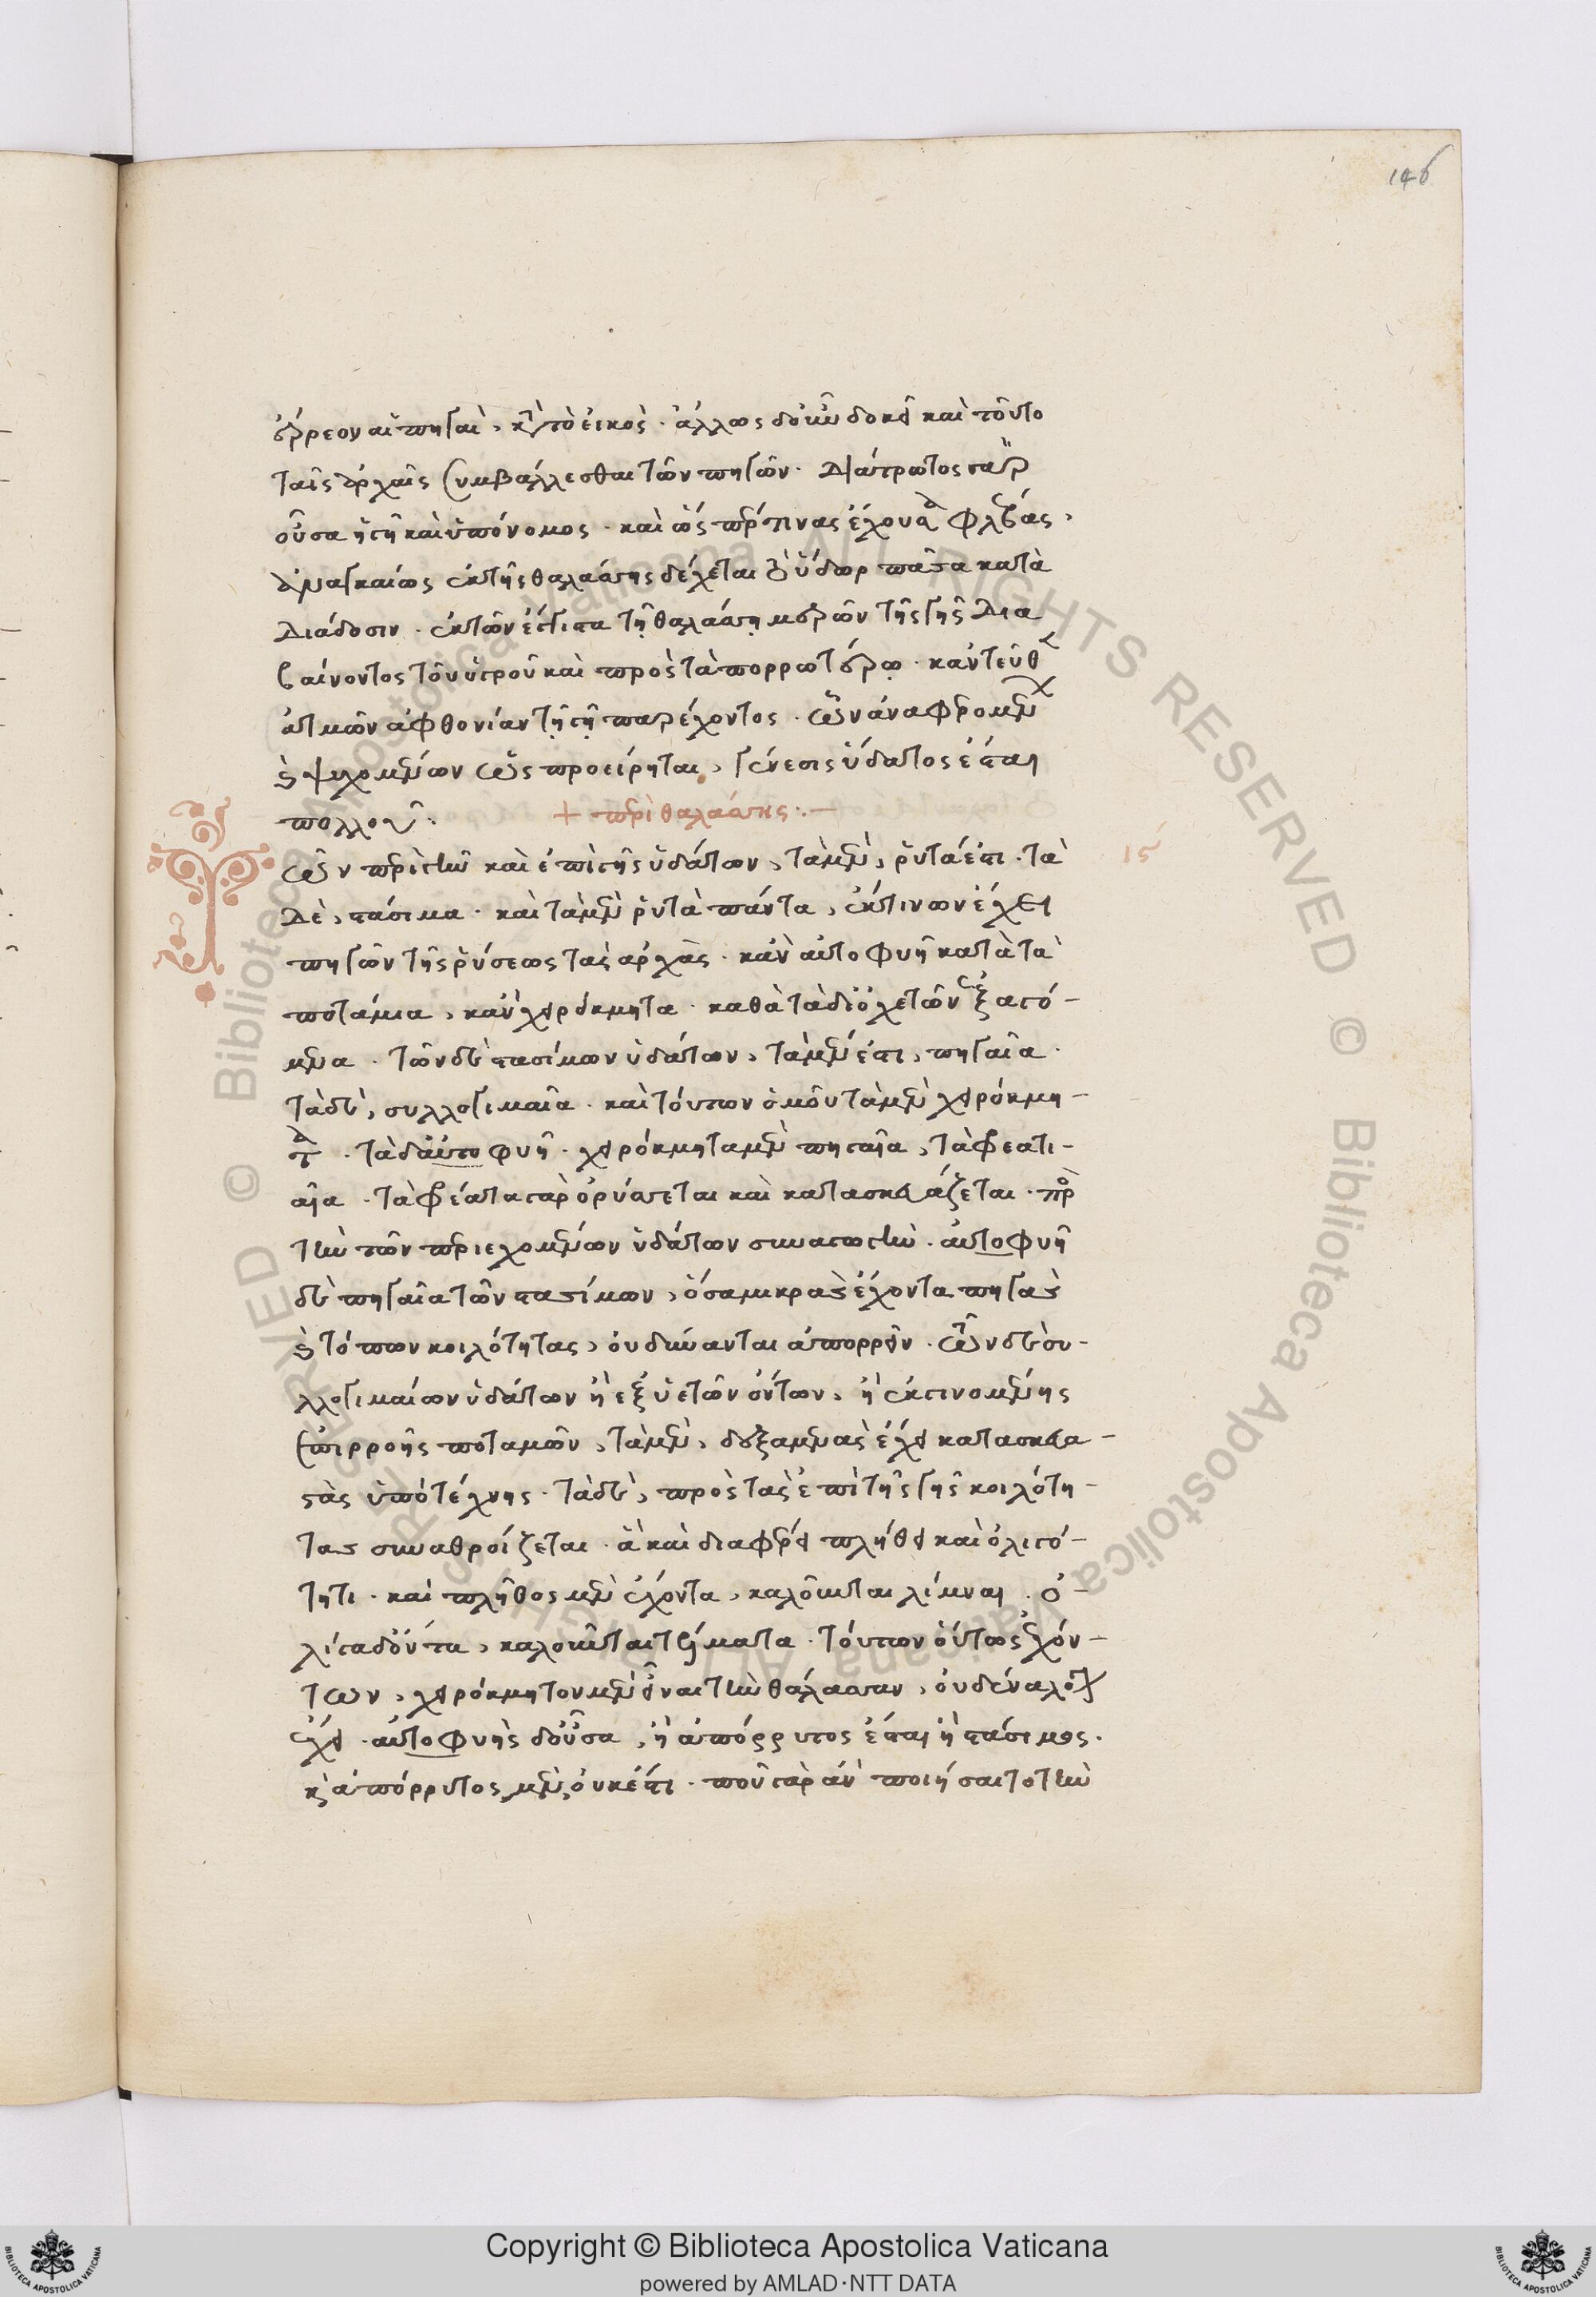 146
ἔρρεον αἱ πηγαί, κατὰ τὸ εἰκός. ἄλλως δ' οὖν δοκεῖ καὶ τοῦτο
ταῖς ἀρχαῖς συμβάλλεσθαι τῶν πηγῶν. διάτρωτος γὰρ
οὖσα ἡ γῆ καὶ ὑπόνομος. καὶ ὥσπερ τινας ἔχουσα φλέβας,
ἀναγκαίως ἐκ τῆς θαλάσσης δέχεται τὸ ὕδωρ πᾶσα κατὰ
διάδοσιν. ἐκ τῶν ἔγγιστα τῇ θαλάσσῃ μερῶν τῆς γῆς δια
βαίνοντος τοῦ ὑγροῦ καὶ πρὸς τὰ πορρωτέρω. κἀντεῦθεν
ἀτμῶν ἀφθονίαν τῇ γῇ παρέχοντος. ὧν ἀναφερομένων
καὶ ψυχομένων ὡς προείρηται, γένεσις ὕδατος ἔσται
πολλοῦ.
+ περὶ θαλάσσης.
Τῶν περὶ γῆν καὶ ἐπὶ γῆς ὑδάτων, τὰ μὲν, ῥυτά ἐστι. τὰ
ιε
δὲ, στάσιμα. καὶ τὰ μὲν ῥυτὰ πάντα, ἔκ τινων ἔχει
πηγῶν τῆς ῥύσεως τὰς ἀρχάς. κἂν αὐτοφυῆ κατὰ τὰ
ποτάμια, κἂν χειρόκμητα. καθὰ τὰ δι' ὀχετῶν ἐξαγό-
μενα. τῶν δὲ στασίμων ὑδάτων, τὰ μέν ἐστι, πηγαῖα.
τὰ δὲ, συλλογιμαῖα. καὶ τούτων ὁμοῦ τὰ μὲν χειρόκμη-
τα. τὰ δ' αὐτοφυῆ. χειρόκμητα μὲν πηγαῖα, τὰ φρεατι-
αῖα. τὰ φρέατα γὰρ ὀρύσσεται καὶ κατασκευάζεται. πρὸς
τὴν τῶν περιεχομένων ὑδάτων συναγωγήν. αὐτοφυῆ
δὲ πηγαῖα τῶν στασίμων, ὅσα μικρὰς ἔχοντα πηγὰς
καὶ τόπων κοιλότητας, οὐ δύνανται ἀπορρεῖν. τῶν δὲ συ-
λλογιμαίων ὑδάτων ἢ ἐξ ὑετῶν ὄντων, ἢ ἐκ γινομένης
ἐπιρροῆς ποταμῶν, τὰ μὲν, δεξαμενὰς ἔχει κατασκευα-
στὰς ὑπὸ τέχνης. τὰ δὲ, πρὸς τὰς ἐπὶ τῆς γῆς κοιλότη-
τας συναθροίζεται. ἃ καὶ διαφέρει πλήθει καὶ ὀλιγό-
τητι. καὶ πλῆθος μὲν ἔχοντα, καλοῦνται λίμναι. ὀ-
λίγα δ' ὄντα, καλοῦνται τέλματα. τούτων οὕτως ἐχόν-
των, χειρόκμητον μὲν εἶναι τὴν θάλασσαν, οὐδένα λόγον
ἔχει. αὐτοφυὴς δ' οὖσα, ἢ ἀπόρρυτος ἔσται ἢ στάσιμος.
καὶ ἀπόρρυτος μὲν οὐκ ἔστι. ποῦ γὰρ ἂν ποιήσαιτο τὴν